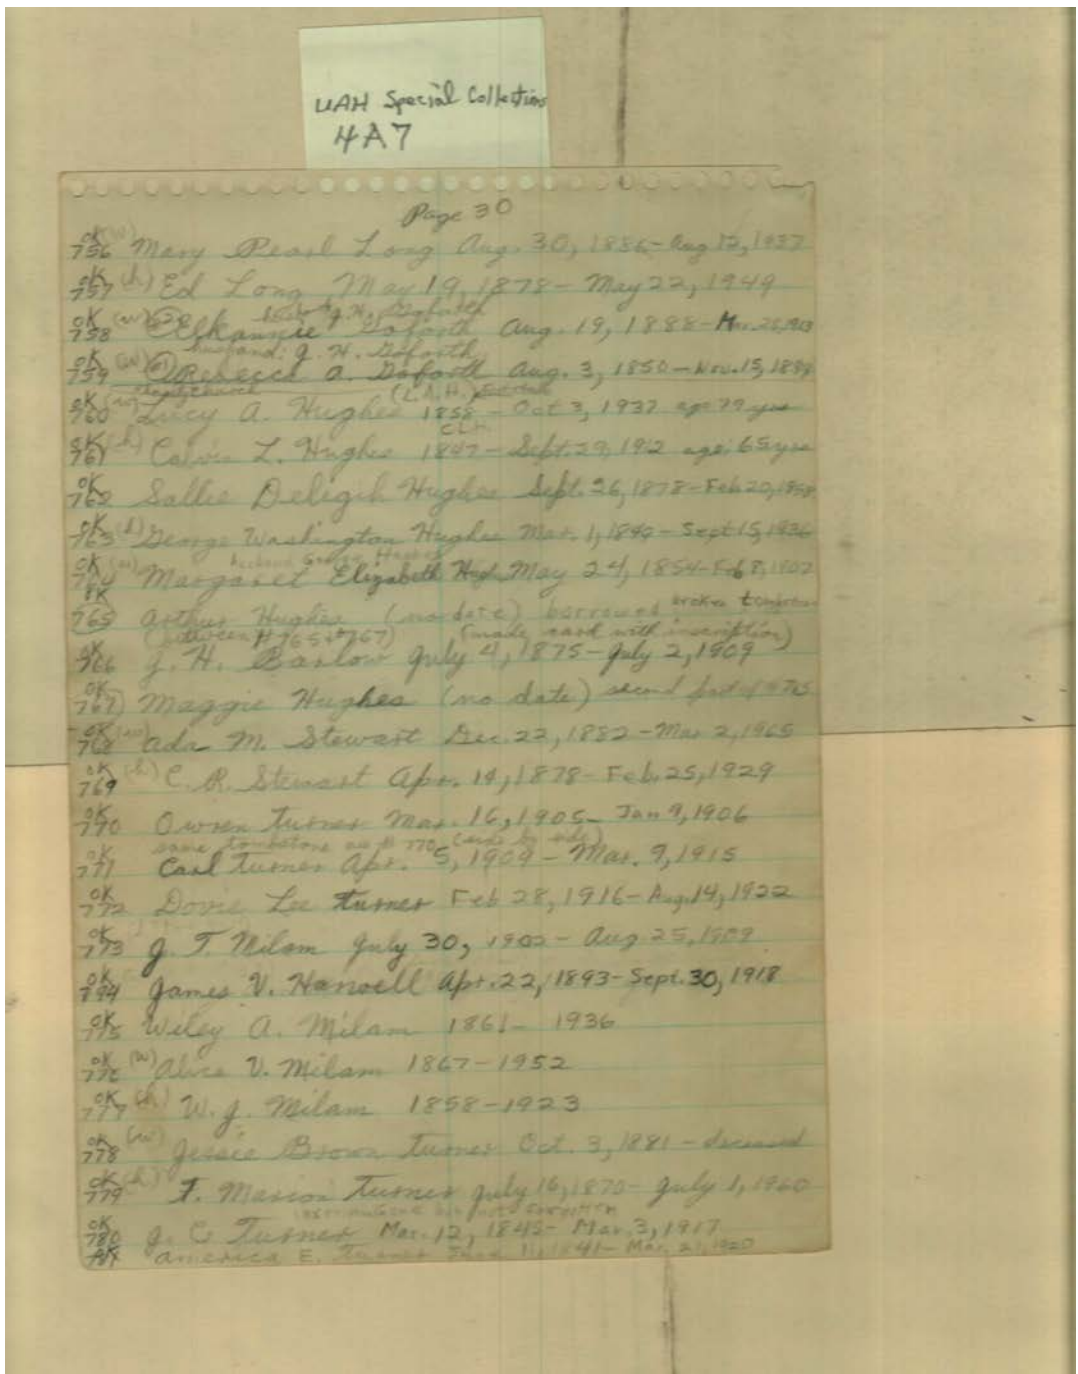 UAH Special Collections
4A7
Page 30
OK (w)
756 Mary Pearl Long Aug. 30, 1886 - Aug 12, 1937
OK
757 (h) Ed Long May 19, 1878 - May 22, 1949
J. H. Goforth
OK (w)
758 Elkannie Goforth Aug. 19, 1888 - Mar.
husband: J. H. Goforth
OK (w)
759 Rebecca A. Goforth Aug. 3, 1850 - Nov. 15,
(L.A.H.)
OK (w)
760 Lucy A. Hughes 1858 - Oct 3, 1937 age 79 yrs
C.L.H.
OK (h)
761 Calvin L. Hughes 1847 - Sept. 29, 1912 age: 65 yrs
OK
762 Sallie Hughes Sept. 26, 1878 - Feb 20,
OK
763 (h) George Washington Hughes Mar. 1, - Sept 15, 1936
husband George Hughes
OK (w)
764 Margaret Elizabeth May 24, 1854 - Feb 8,
OK
765 Arthur Hughes (no date) broken
(between # 765 & 767) (made with inscription)
OK
766 J. H. Barlow July 4, 1875 - July 2, 1909
OK
767 Maggie Hughes (no date) second part of # 765
OK (w)
768 Ada M. Stewart Dec. 22, 1882 - Mar 2, 1965
OK (h)
769 C. R. Stewart Apr. 14, 1878 - Feb. 25, 1929
OK
770 Owren Turner Mar. 16, 1905 - Jan 9, 1906
same tombstone as # 770 (side by side)
OK
771 Carl Turner Apr. 5, 1909 - Mar. 9, 1915
OK
772 Doris Lee Turner Feb 28, 1916 - Aug. 14, 1922
OK
773 J. T. Milam July 30, 1902 - Aug 25, 1909
OK
774 James V. Harwell Apr. 22, 1893 - Sept. 30, 1918
OK
775 Wiley A. Milam 1861 - 1936
OK (w)
776 Alice V. Milam 1867 - 1952
OK
777 (h) W. J. Milam 1858 - 1923
OK (w)
778 Jessie Brown Turner Oct. 3, 1881 - deceased
OK (h)
779 T. Marion Turner July 16, 1870 - July 1, 1960
OK
780 J. C. Turner Mar. 12, 1842 - Mar. 3, 1917
OK America E. Turner 11, 1841 - Mar. 21, 1920